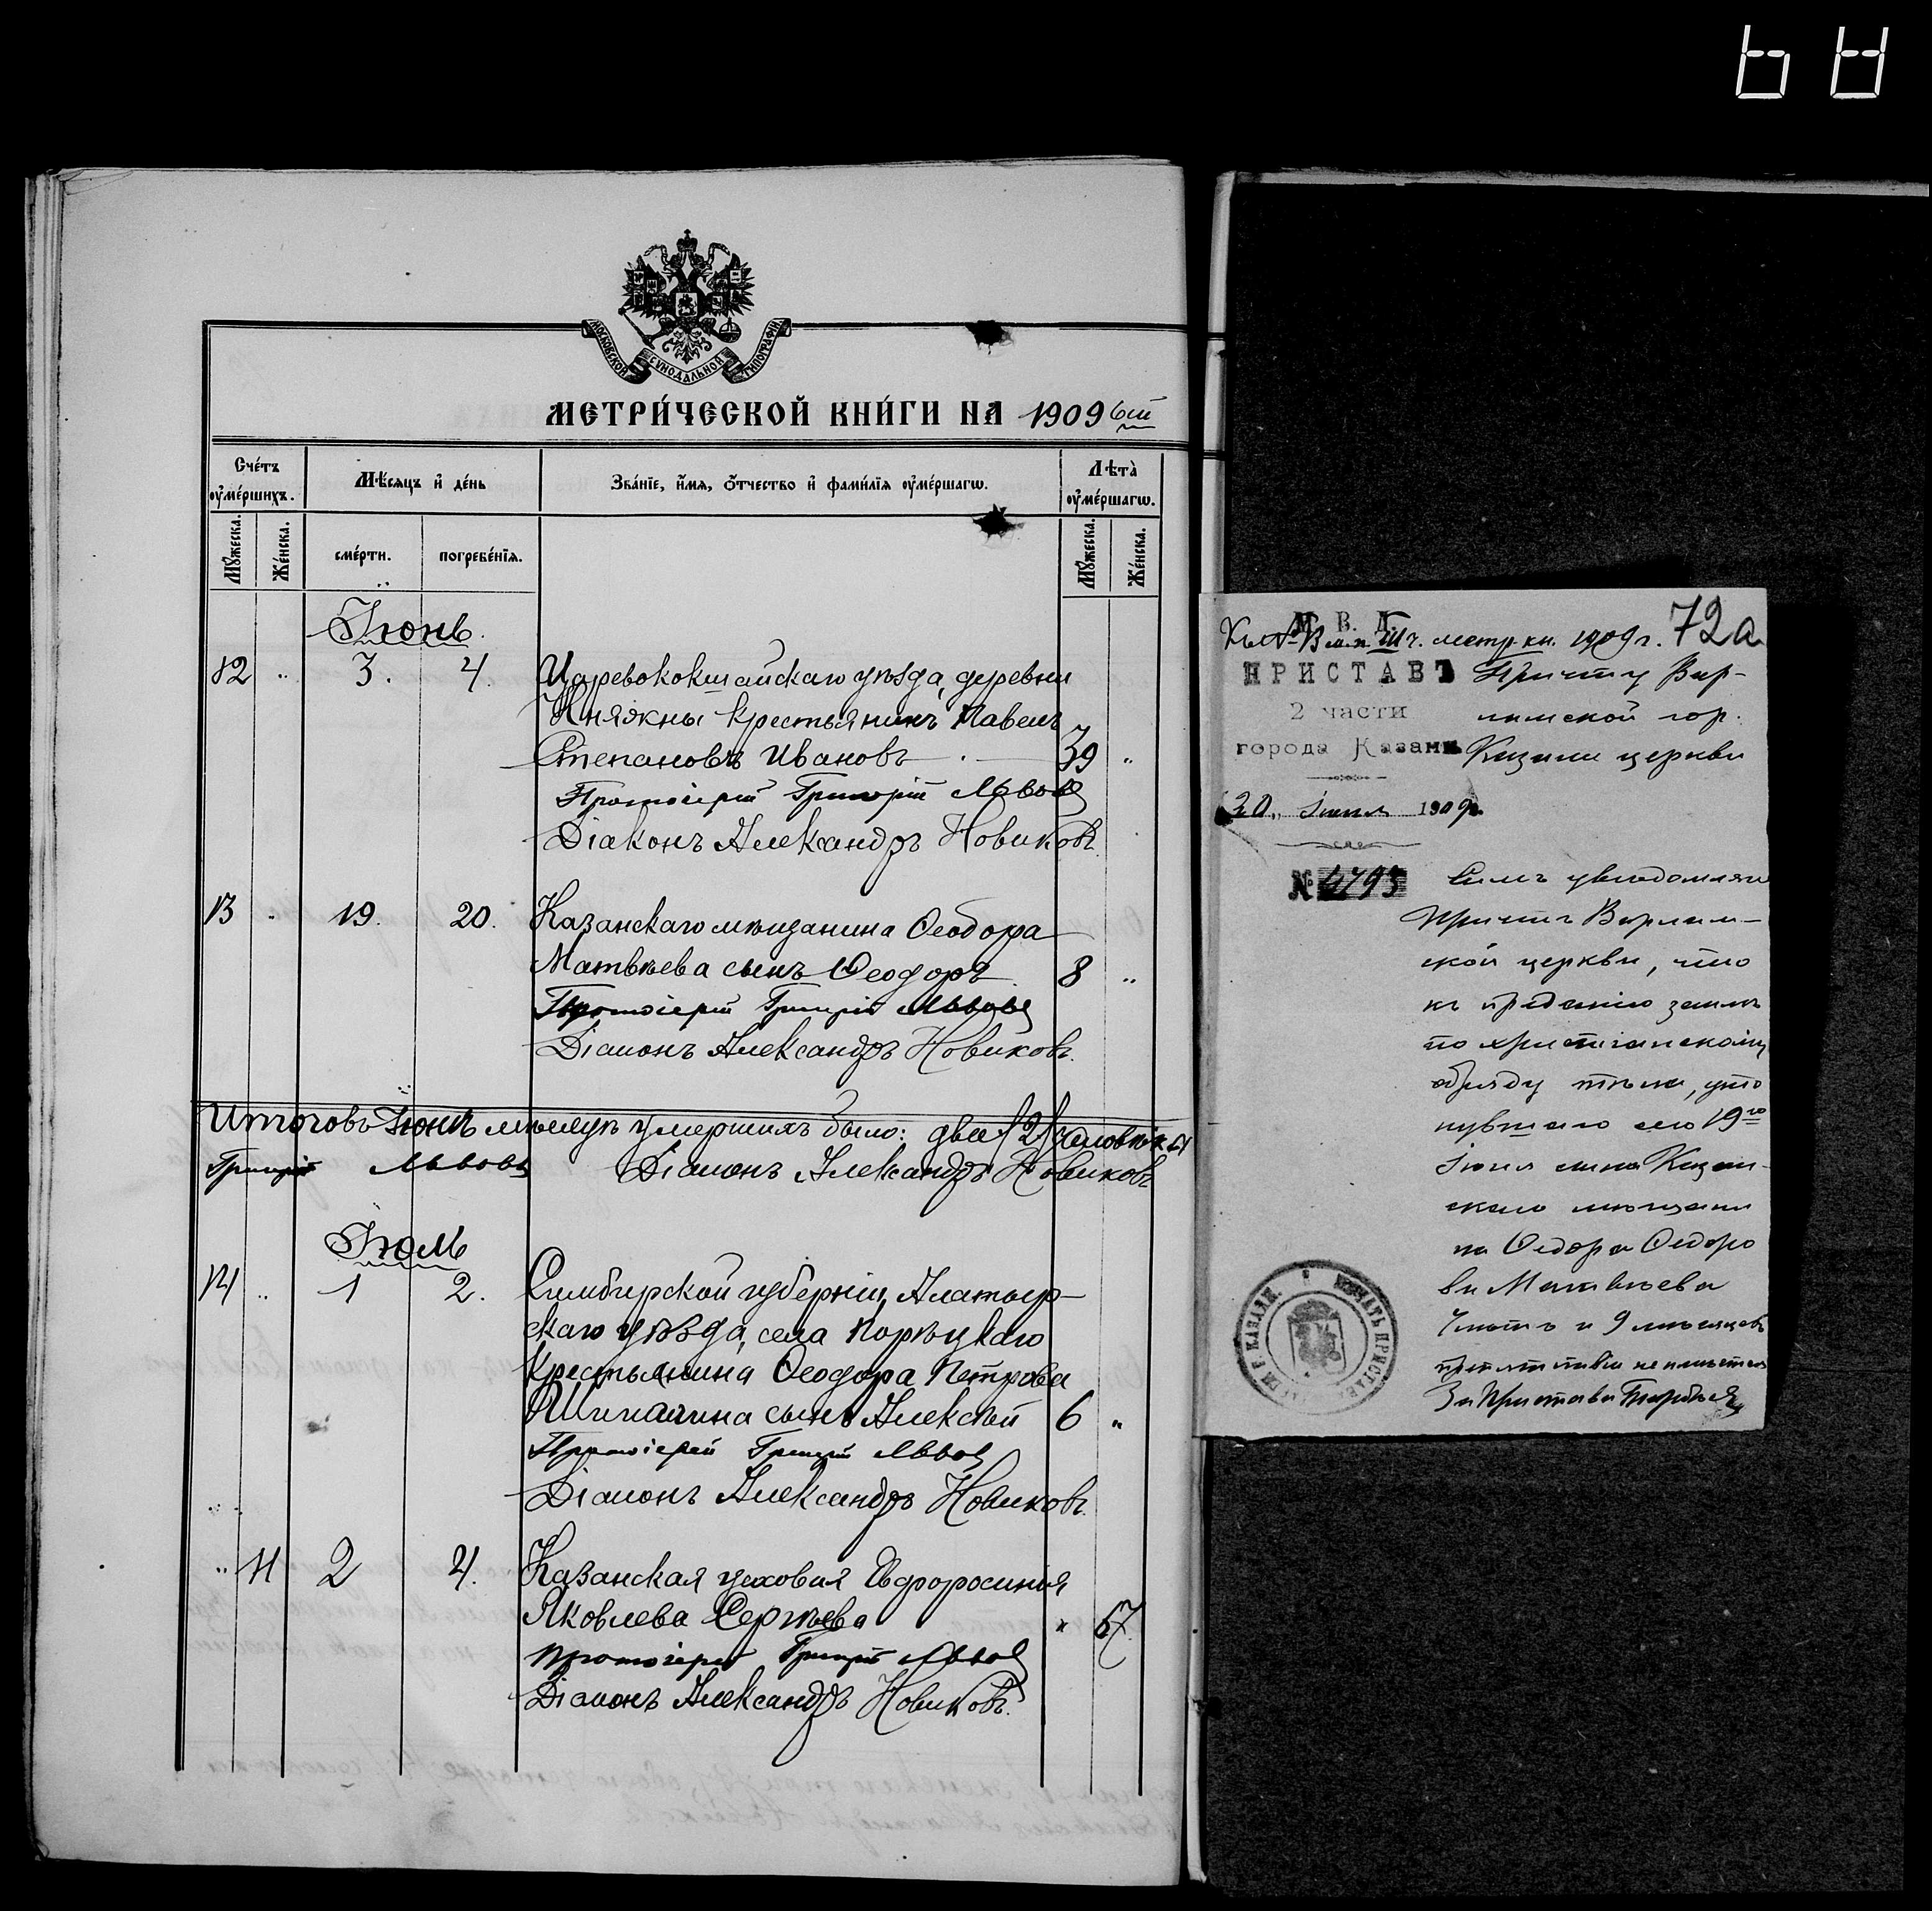 МОСКОВСКОЙ СѴНОДАЛЬНОЙ ТИПОГРАФІИ
МЕТРИ́ЧЕСКОЙ КНИ́ГИ НА 1909 год
Сче́тъ оуме́ршихъ.
Мѣ́сяцъ и де́нь
Зва́нїе, и́мя, о́тчество и фами́лїя оуме́ршагѡ.
Лѣта̀ оуме́ршагѡ.
Мꙋ́жеска. Же́нска. сме́рти. погребе́нїя. Мꙋ́жеска. Же́нска.
Іюнь.
12 „ 3. 4. Царевококшайскаго уѣзда, деревни
Княжны крестьянинъ Павелъ
Степановъ Ивановъ 39 „
Протоіерей Григорій Львовъ
Діаконъ Александръ Новиковъ.
13 „ 19. 20. Казанскаго мѣщанина Ѳеодора
Матвѣева сынъ Ѳеодоръ 8 „
Протоіерей Григорій Львовъ
Діаконъ Александръ Новиковъ.
Итого въ Іюнѣ мѣсяцѣ умершихъ было: два (2) человѣка
Григорій Львовъ Діаконъ Александръ Новиковъ
Іюль
14 „ 1 2. Симбирской губерніи, Алатыр-
скаго уѣзда, села Порѣцкаго
крестьянина Ѳеодора Петрова
сынъ Алексѣй 6 „
Протоіерей Григорій Львовъ
Діаконъ Александръ Новиковъ.
„ 11 2 4. Казанская цеховая Евфросинія
Яковлева Сергѣева „ 67
Протоіерей Григорій Львовъ
Діаконъ Александръ Новиковъ.
72а
М. В. Д.
Къ № 13 м.п. III ч. метр. кн. 1909 г.
ПРИСТАВЪ
2 части
города Казани
20 „ Іюня 1909 г.
№ 4793
Причту Вар-
ламской гор.
Казани церкви
Симъ увѣдомляю
причтъ Варлам-
ской церкви, что
къ преданію землѣ
по христіанскому
обряду тѣла, уто
нувшаго сего 19го
Іюня сына Казан-
скаго мѣщани
на Ѳедора Ѳедоро
ва Матвѣева
7 лѣтъ и 9 мѣсяцевъ
препятствія не имѣется
За Пристава
ПЕЧАТЬ ПРИСТАВА Г. КАЗАНИ